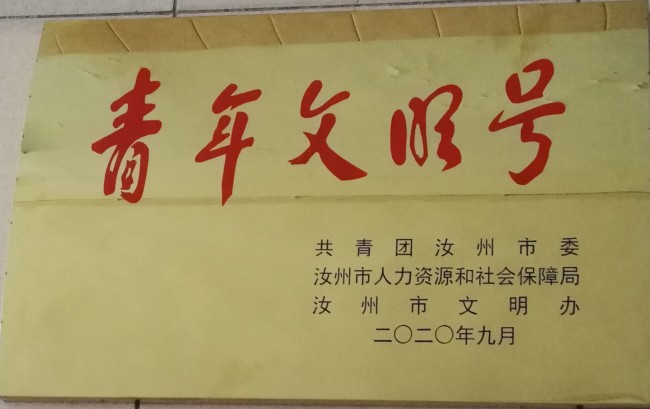 青年文明号
共青团汝州市委
汝州市人力资源和社会保障局
汝州市文明办
二〇二〇年九月